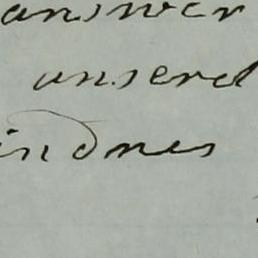 answer
unsered
indnes